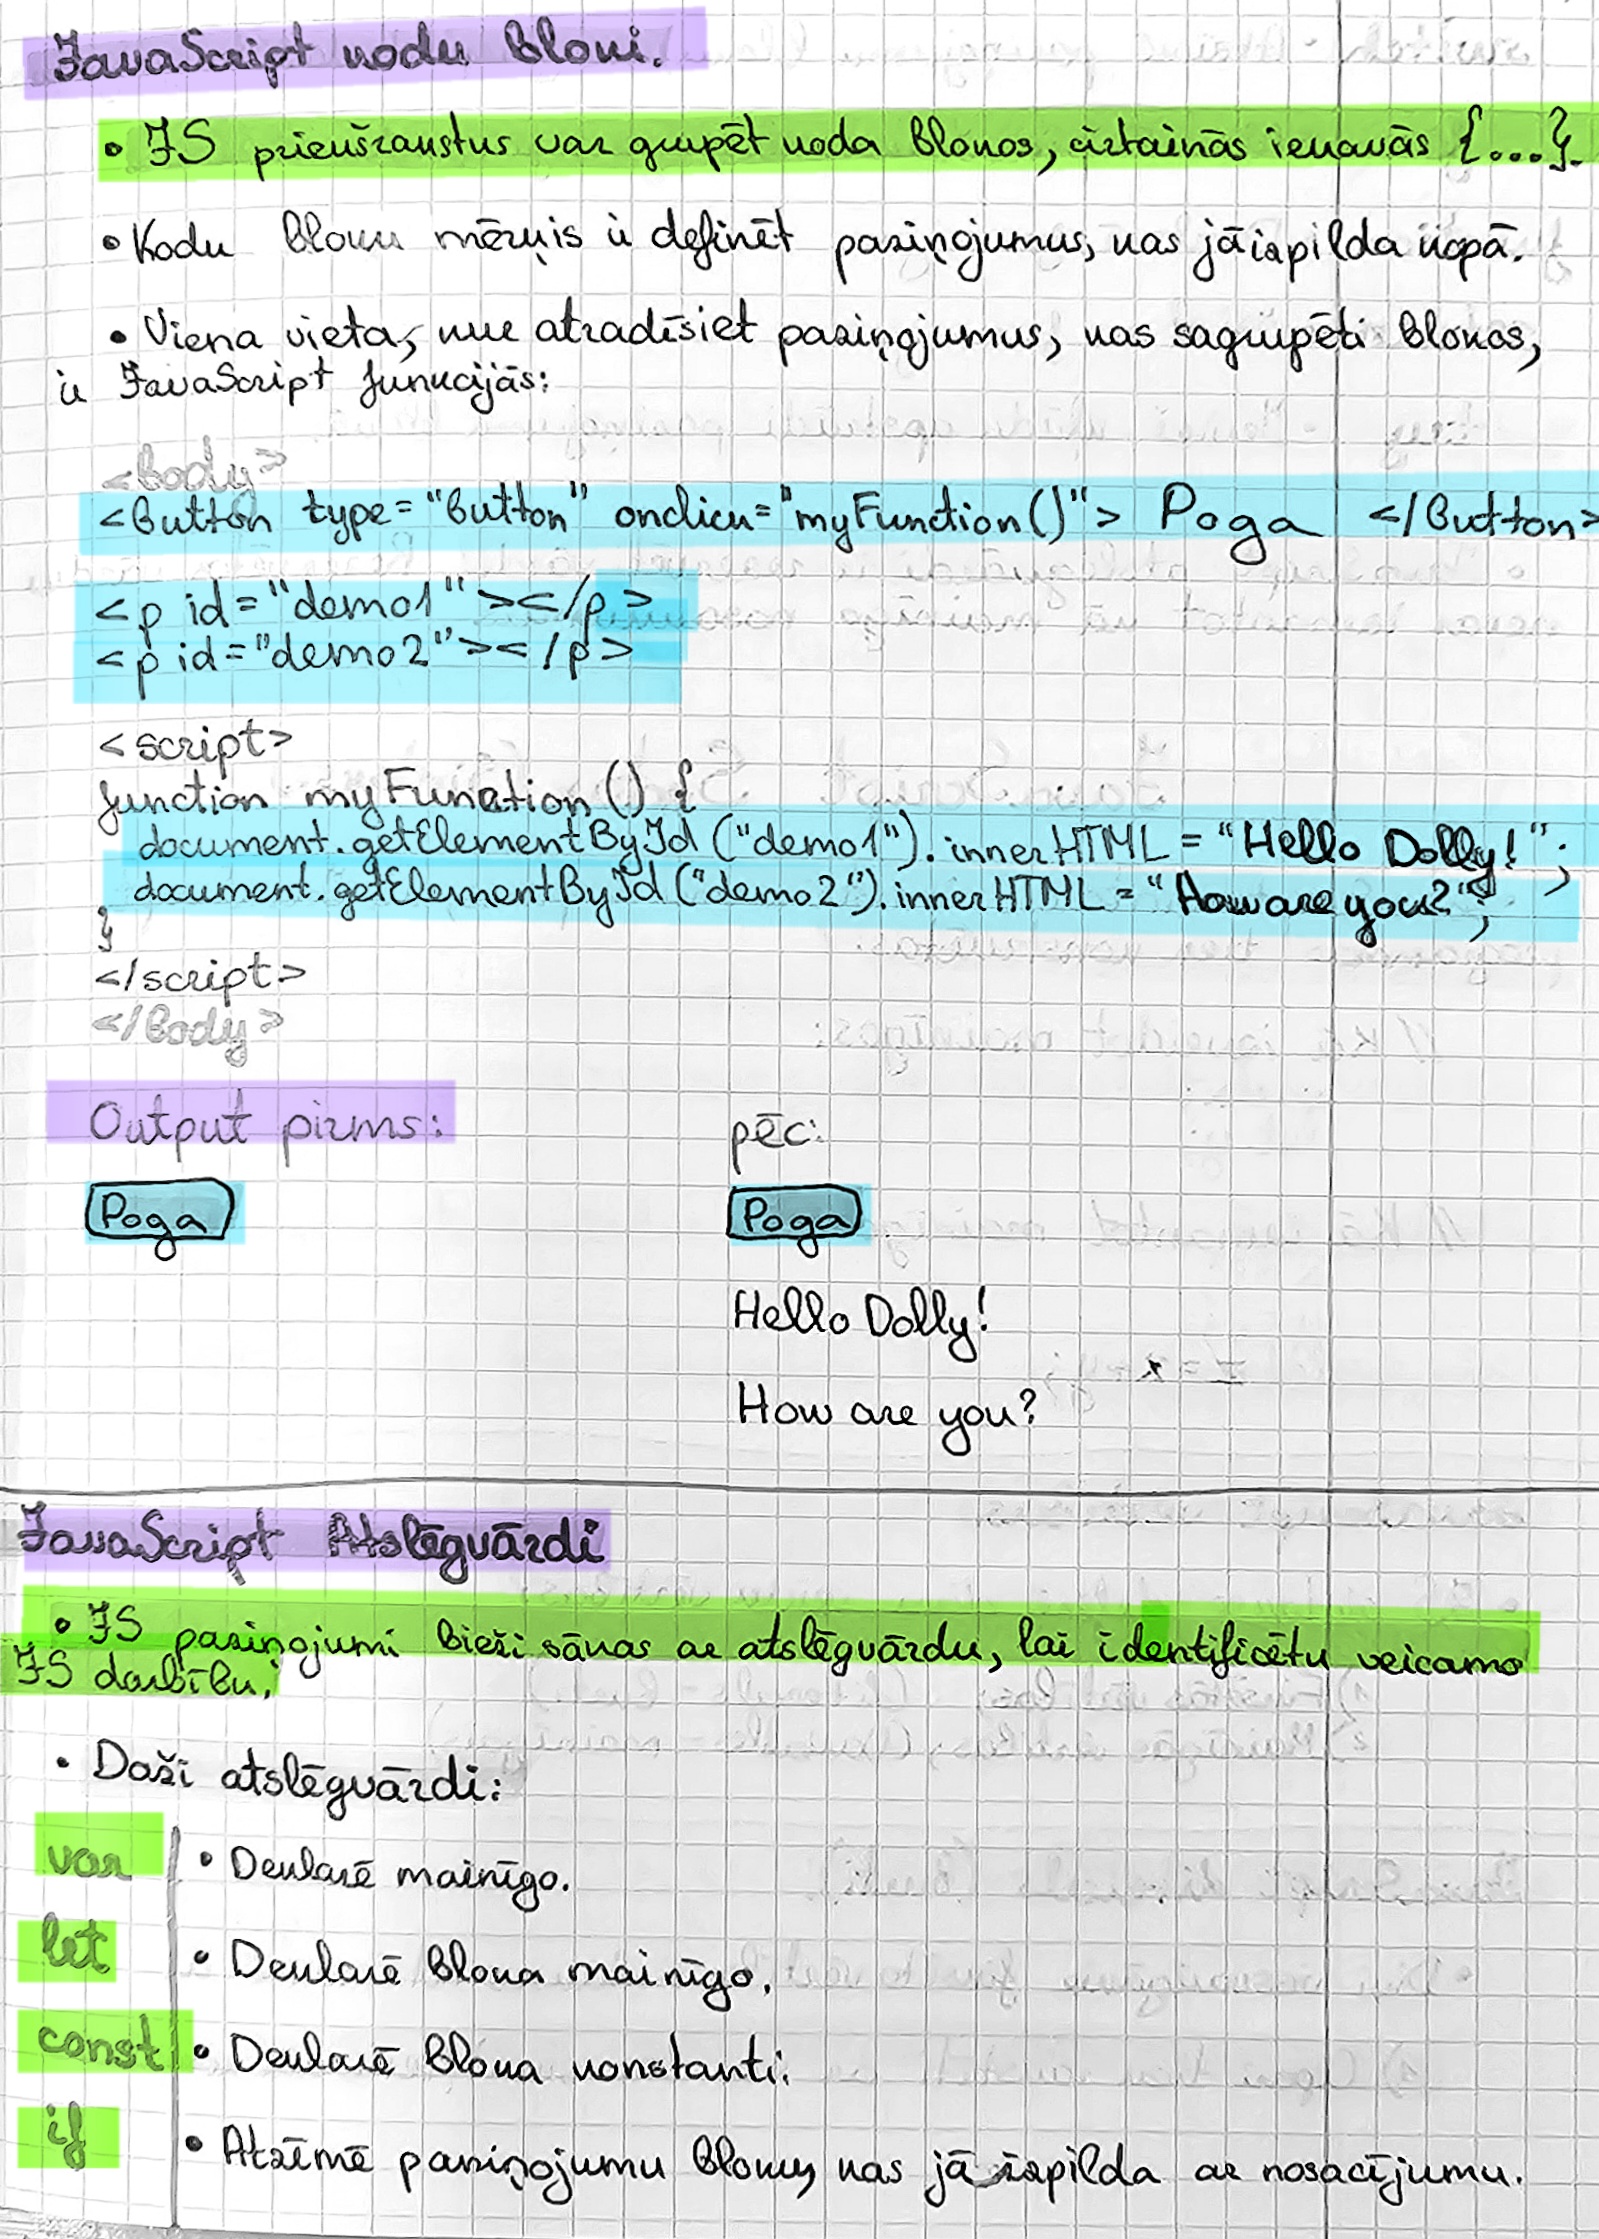 JavaScript kodu bloki.
• JS priekšrakstus var grupēt koda blokos, cirtainās iekavās {...}.
• Kodu bloku mērķis ir definēt paziņojumus, kas jāizpilda kopā.
• Viena vieta, kur atradīsiet paziņojumus, kas sagrupēti blokos,
ir JavaScript funkcijās:
<body>
<button type="button" onclick="myFunction()"> Poga </button>
<p id="demo1"></p>
<p id="demo2"></p>
<script>
function myFunction() {
document.getElementById("demo1").innerHTML = "Hello Dolly!";
document.getElementById("demo2").innerHTML = "How are you?";
}
</script>
</body>
Output pirms: pēc:
Poga Poga
Hello Dolly!
How are you?
JavaScript Atslēgvārdi
• JS paziņojumi bieži sākas ar atslēgvārdu, lai identificētu veicamo
JS darbību.
• Daži atslēgvārdi:
var • Deklarē mainīgo.
let • Deklarē bloka mainīgo.
const • Deklarē bloka konstanti.
if • Atzīmē paziņojumu bloku, kas jāizpilda ar nosacījumu.